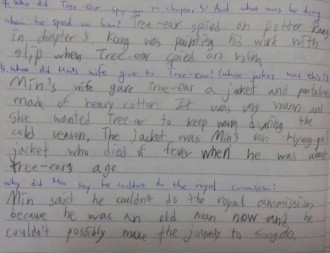 4. who did Tree-ear spy on in chapter 5? And what was he doing
when he spied on him? Tree-ear spied on potter Kang
in chapter 5. Kang was painting his work with
slip when Tree-ear spied on him.
5. what did Min's wife give to Tree-ear? (whose jacket was this?)
Min's wife gave Tree-ear a jacket and pantaloons
made of heavy cotton. It was very warm and
she wanted Tree-ear to keep warm during the
cold season. The jacket was Min's son Hyung-gu's
jacket who died of fever when he was
tree-ear's age.
why did Min say he couldn't do the royal commission?
Min said he couldn't do the royal commission
because he was an old man now and he
couldn't possibly make the journey to Songdo.